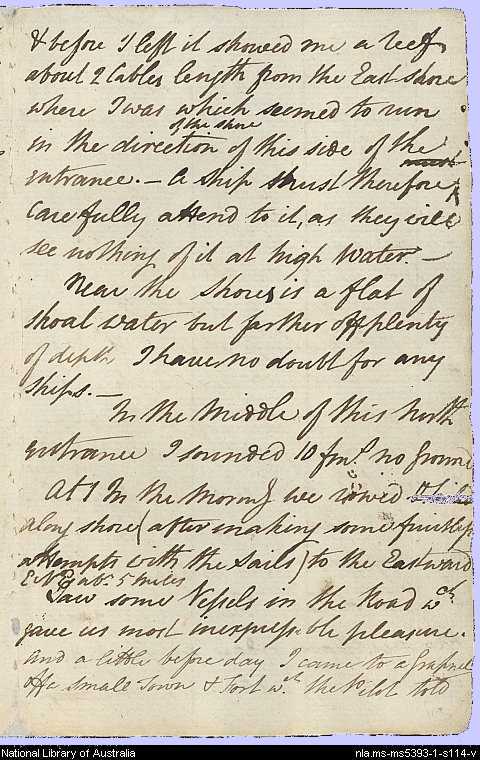 & before I left it showed me a reef
about 2 Cables length from the East shore
where I was which seemed to run
of the shore
in the direction of this side of the
entrance. — A ship must therefore
carefully attend to it, as they will
see nothing of it at high water —
Near the shores is a flat of
shoal water but farther off plenty
of depth I have no doubt for any
ships. —
In the Middle of this North
entrance I sounded 10 fms no ground
At 1 In the Morng we rowed
along shore (after making some fruitless
attempts with the Sails) to the Eastward
E N E abt 5 miles
Saw some Vessels in the Road wch
gave us most inexpressible pleasure.
and a little before day I came to a Grapnel
off a small Town & Fort wch the Pilot told
National Library of Australia
nla.ms-ms5393-1-s114-v